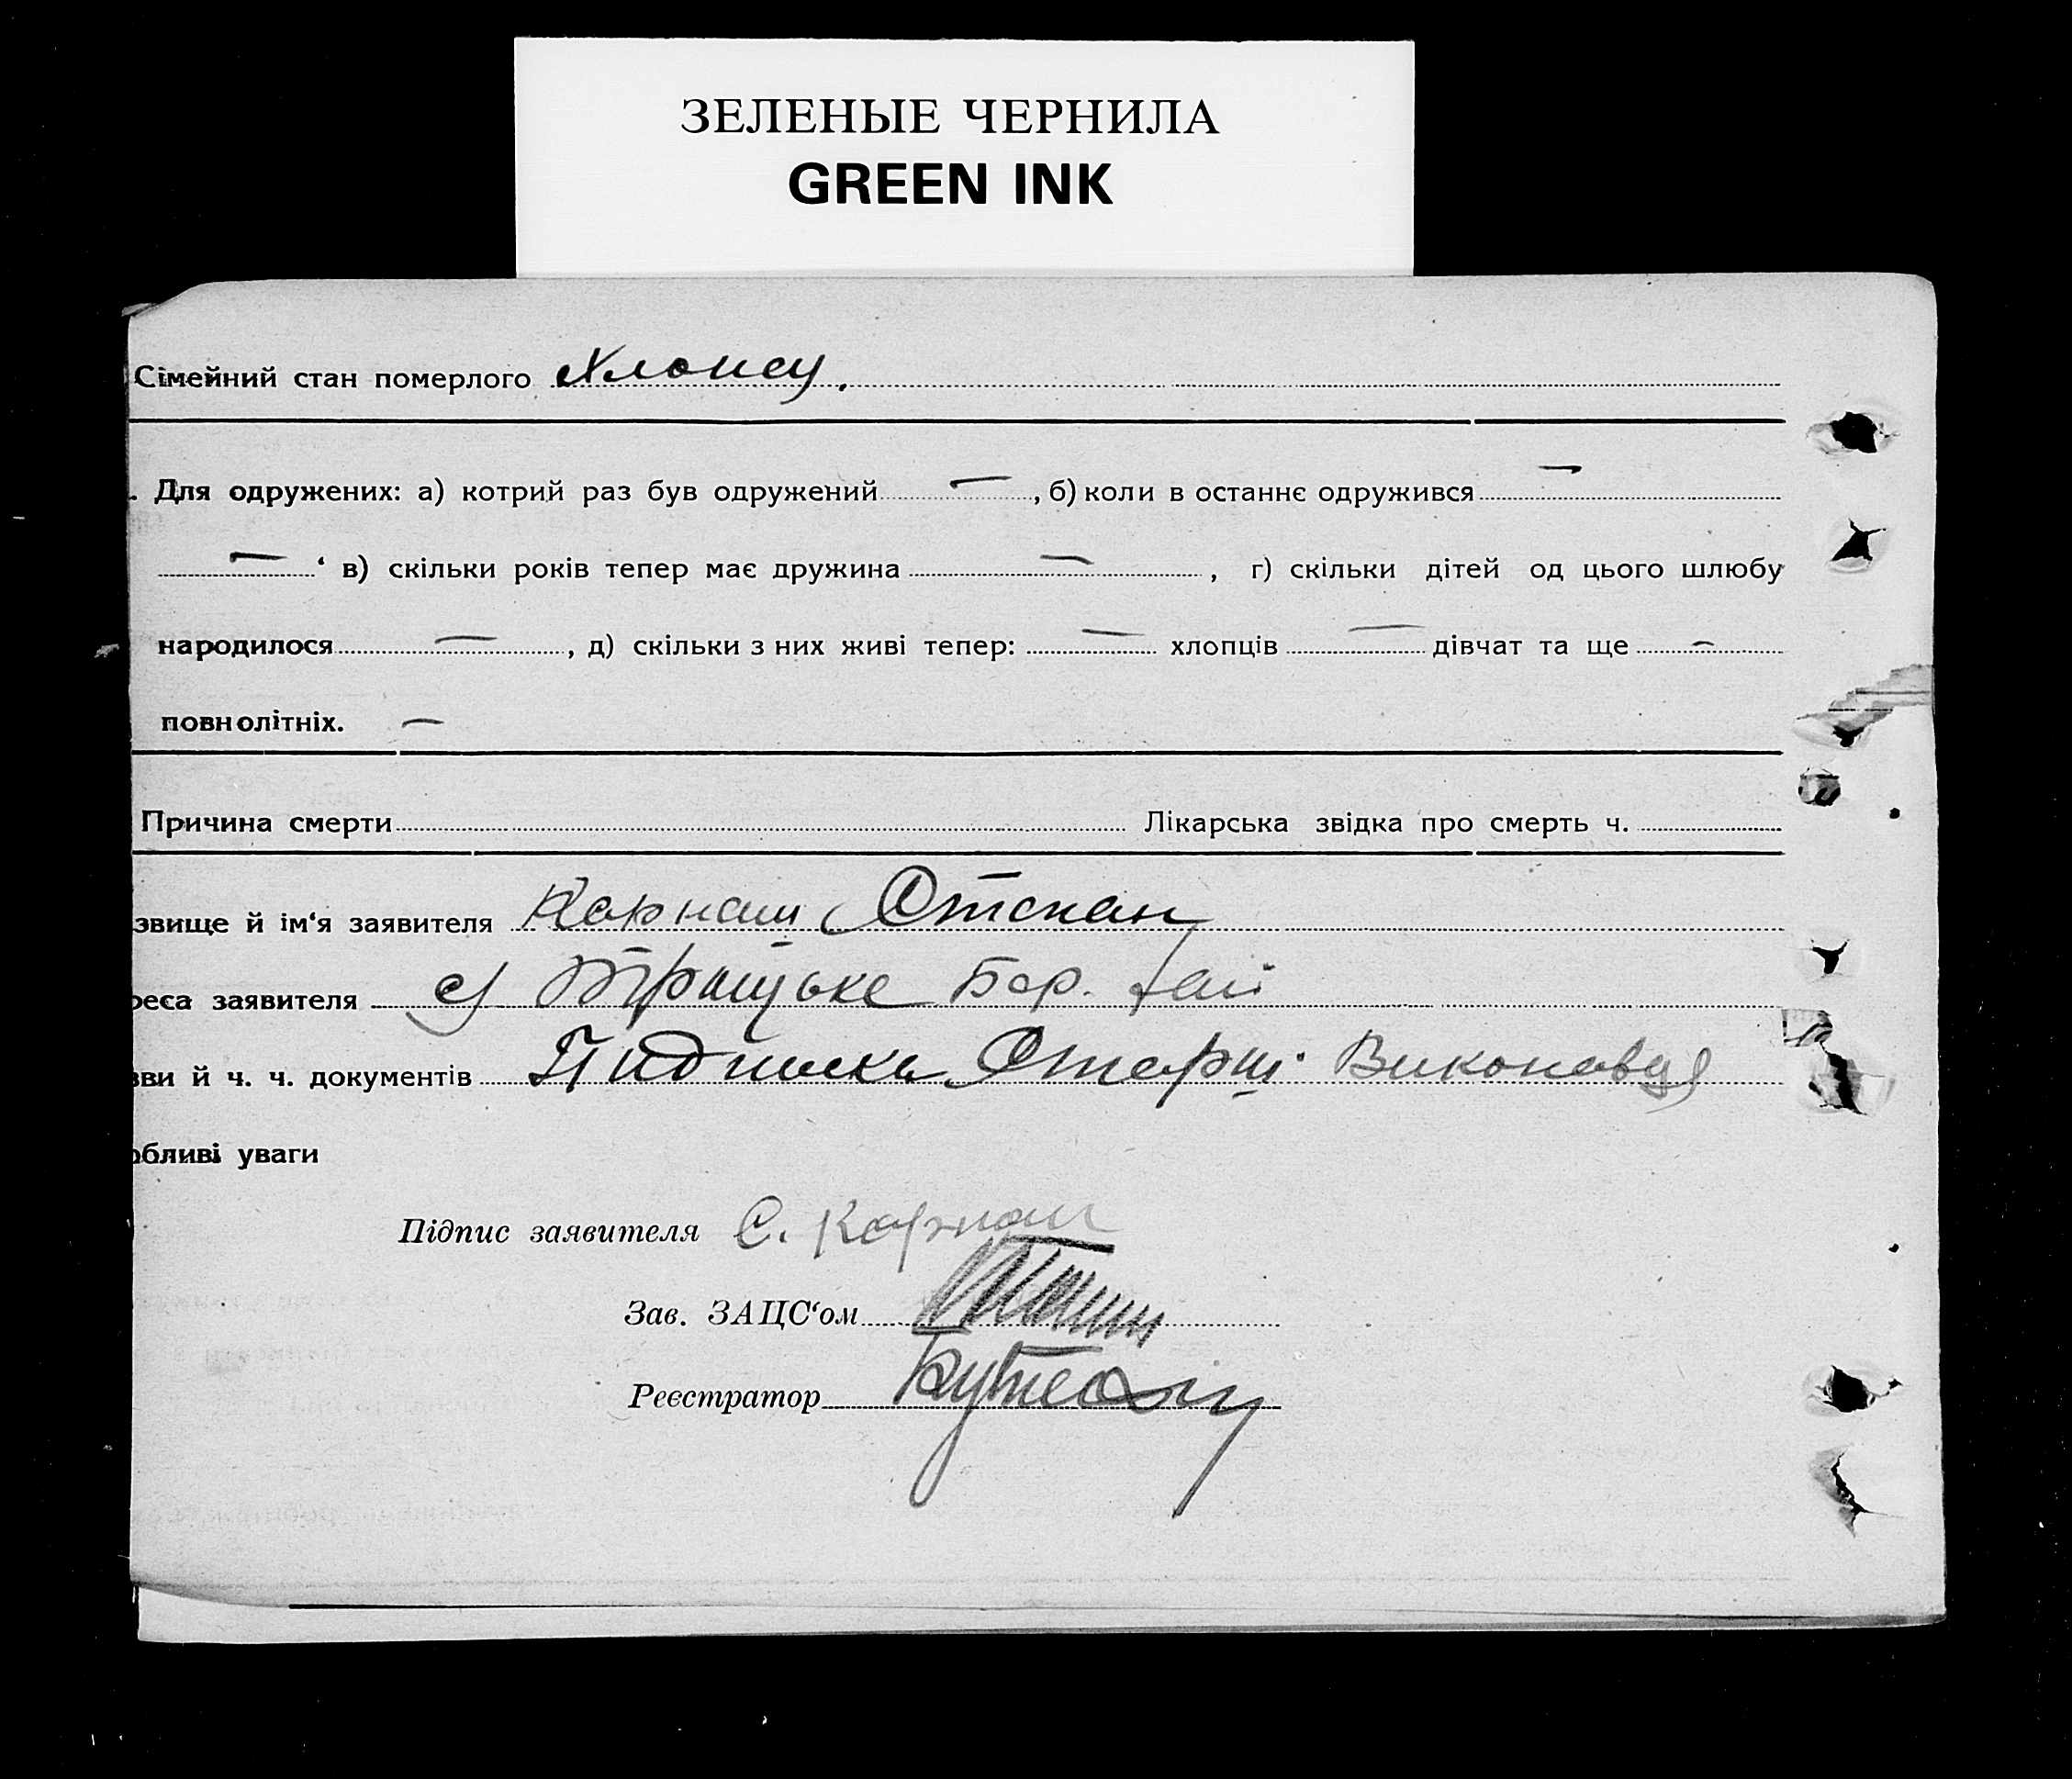 ЗЕЛЕНЫЕ ЧЕРНИЛА
GREEN INK
Сімейний стан померлого
. Для одружених: а) котрий раз був одружений — , б) коли в останнє одружився —
— ‘ в) скільки років тепер має дружина — , г) скільки дітей од цього шлюбу
народилося — , д) скільки з них живі тепер: — хлопців — дівчат та ще —
повнолітніх. —
Причина смерти Лікарська звідка про смерть ч.
звище й ім‘я заявителя Карнаш Степан
реса заявителя с Бор.
зви й ч. ч. документів Підписка Старш. Виконавця
обливі уваги
Підпис заявителя С. Карнаш
Зав. ЗАЦС‘ом
Реєстратор